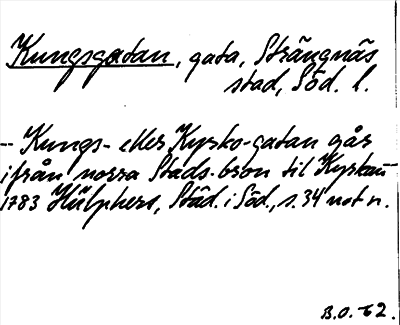 Kungsgatan, gata, Strängnäs
stad, Söd. l.
-- Kungs- eller Kyrko-gatan går
ifrån norra Stads-bron til Kyrkan --
1783 Hülphers, Städ. i Söd., s. 34 not n.
B.O. 62.